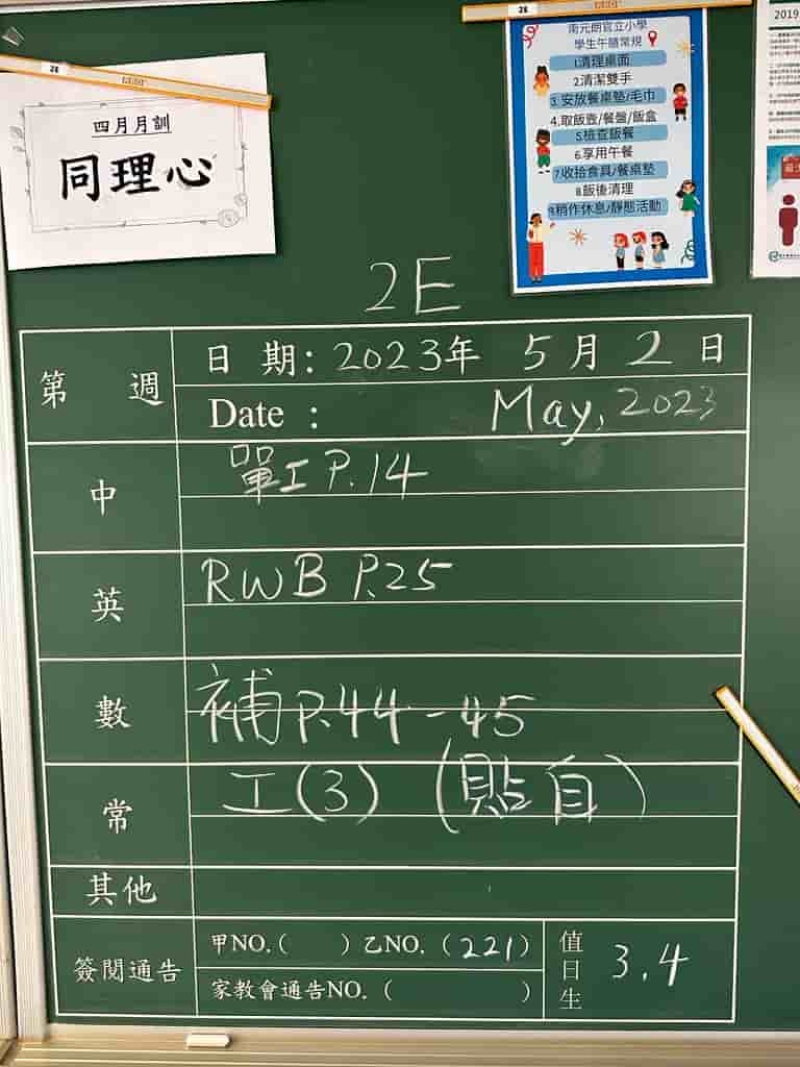 26
四月月訓
同理心
26
南元朗官立小學
學生午膳常規
1.清理桌面
2.清潔雙手
3.安放餐桌墊/毛巾
4.取飯壺/餐盤/飯盒
5.檢查飯餐
6.享用午餐
7.收拾食具/餐桌墊
8.飯後清理
9.稍作休息/靜態活動
2019
2E
第 週
日 期：2023年 5月 2 日
Date ： May, 2023
中
單工 P.14
英
RWB P.25
數
補 P.44-45
常
工(3) (貼自)
其他
簽閱通告
甲NO.( ) 乙NO. (221)
家教會通告NO. ( )
值日生
3.4